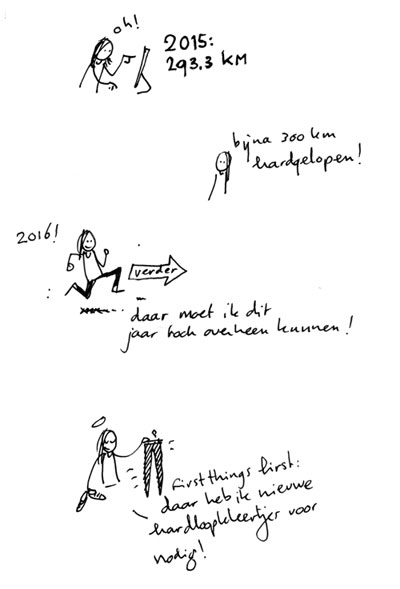 oh!
2015:
293.3 KM
bijna 300 km
hardgelopen!
2016!
verder
daar moet ik dit
jaar toch overheen kunnen!
first things first:
daar heb ik nieuwe
hardloopkleertjes voor
nodig!